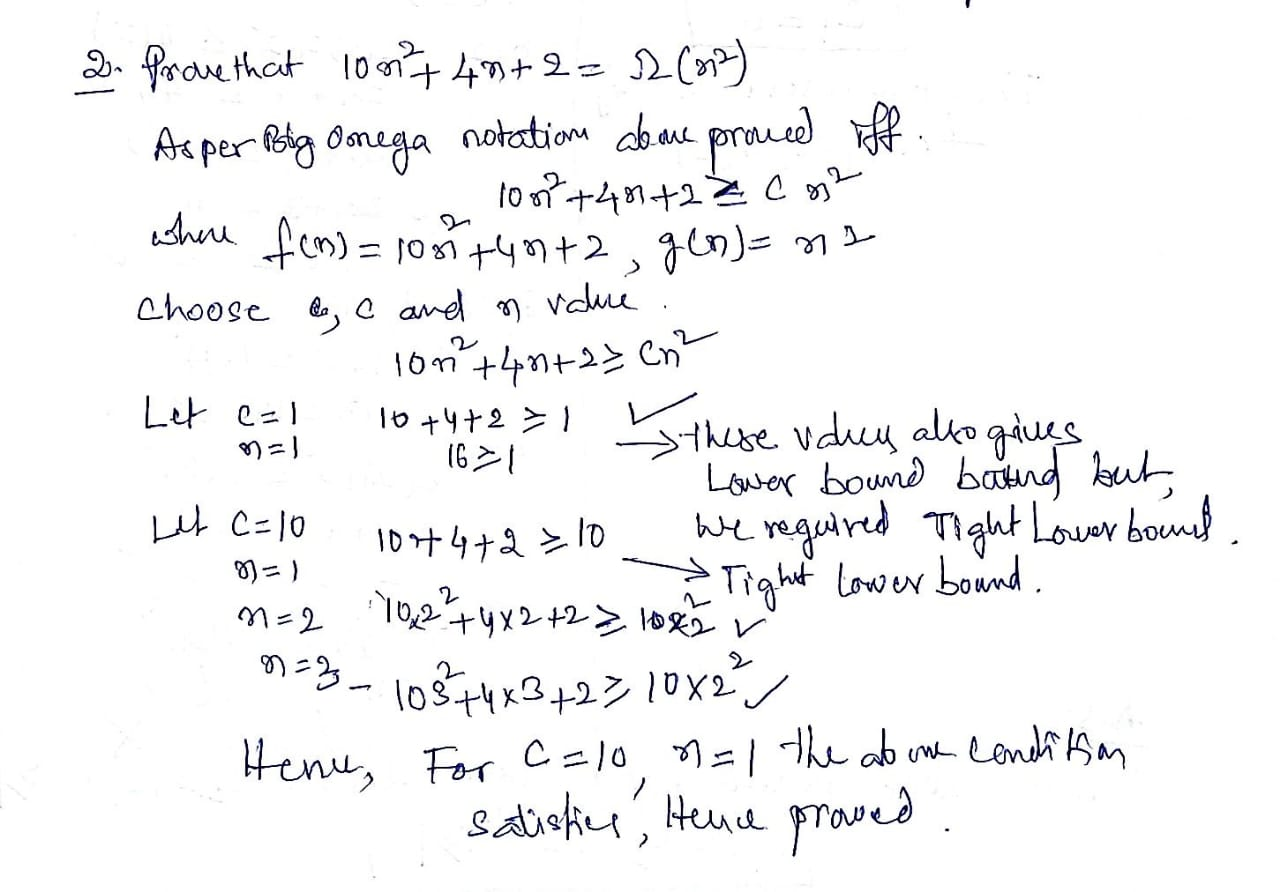 2. Prove that 10n² + 4n + 2 = Ω(n²)
As per Big Omega notation above proved iff.
10n² + 4n + 2 ≥ C n²
where f(n) = 10n² + 4n + 2, g(n) = n²
Choose C and n value.
10n² + 4n + 2 ≥ Cn²
Let C=1 10+4+2 ≥ 1 ✓
n=1 16 ≥ 1 → These values also gives
Lower bound but,
Let C=10 10+4+2 ≥ 10 we required Tight Lower bound.
n=1 → Tight lower bound.
n=2 10×2² + 4×2 + 2 ≥ 10×2² ✓
n=3 - 10 3² + 4×3 + 2 ≥ 10×2² ✓
Hence, For C=10, n=1 the above condition
satisfies, Hence proved.